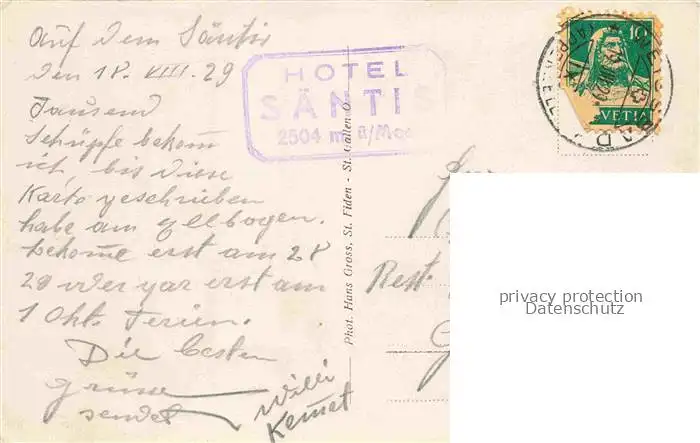 Auf dem Säntis
den 18. VIII. 29
Tausend
Schüpfe bekom
ich, bis diese
Karte geschrieben
habe am Ellbogen.
bekome erst am 28
29 oder gar erst am
1 Okt. Ferien.
Die besten
grüsse
sendet
Willi
HOTEL
SÄNTIS
2504 m ü/Meer
Phot. Hans Gross, St. Fiden - St. Gallen O
10
HELVETIA
Rest.
privacy protection
Datenschutz